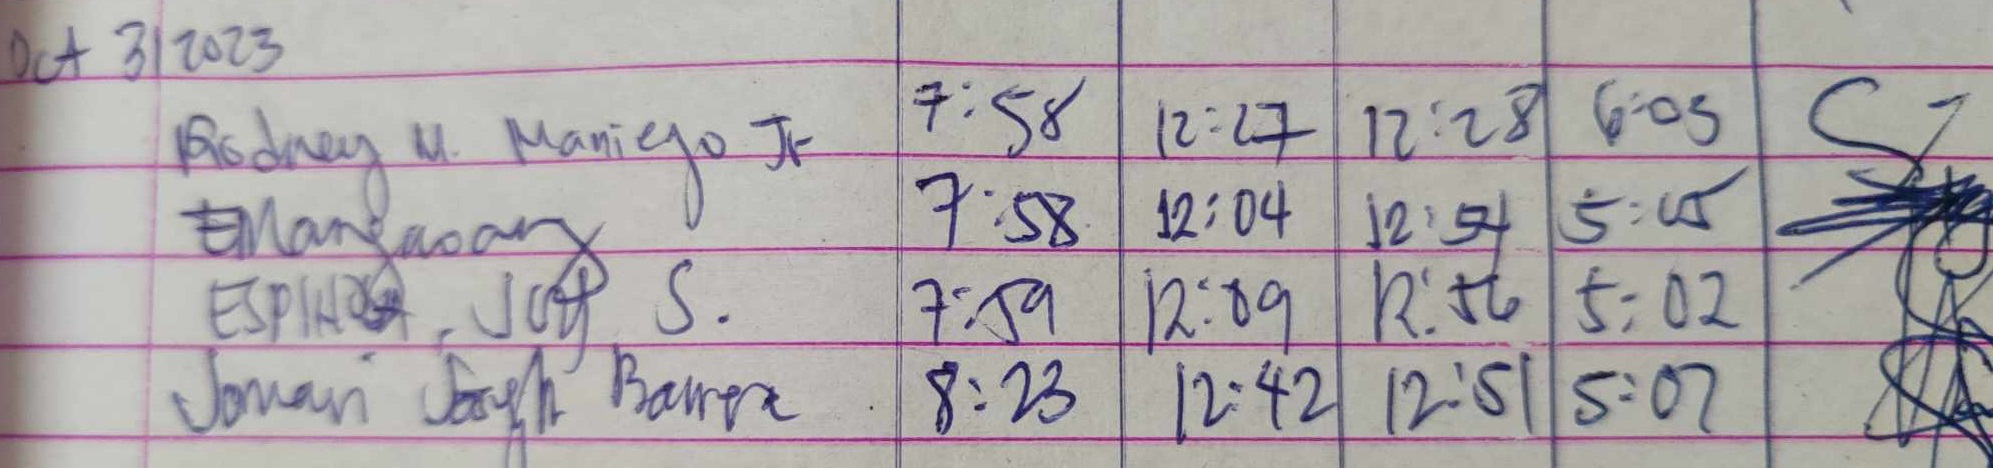 Oct 31 2023
Rodney M. Maniego Jr 7:58 12:27 12:28 6:05
7:58 12:04 12:54 5:05
S. 7:59 12:09 12:56 5:02
Jomari Joseph Barrera 8:23 12:42 12:51 5:07